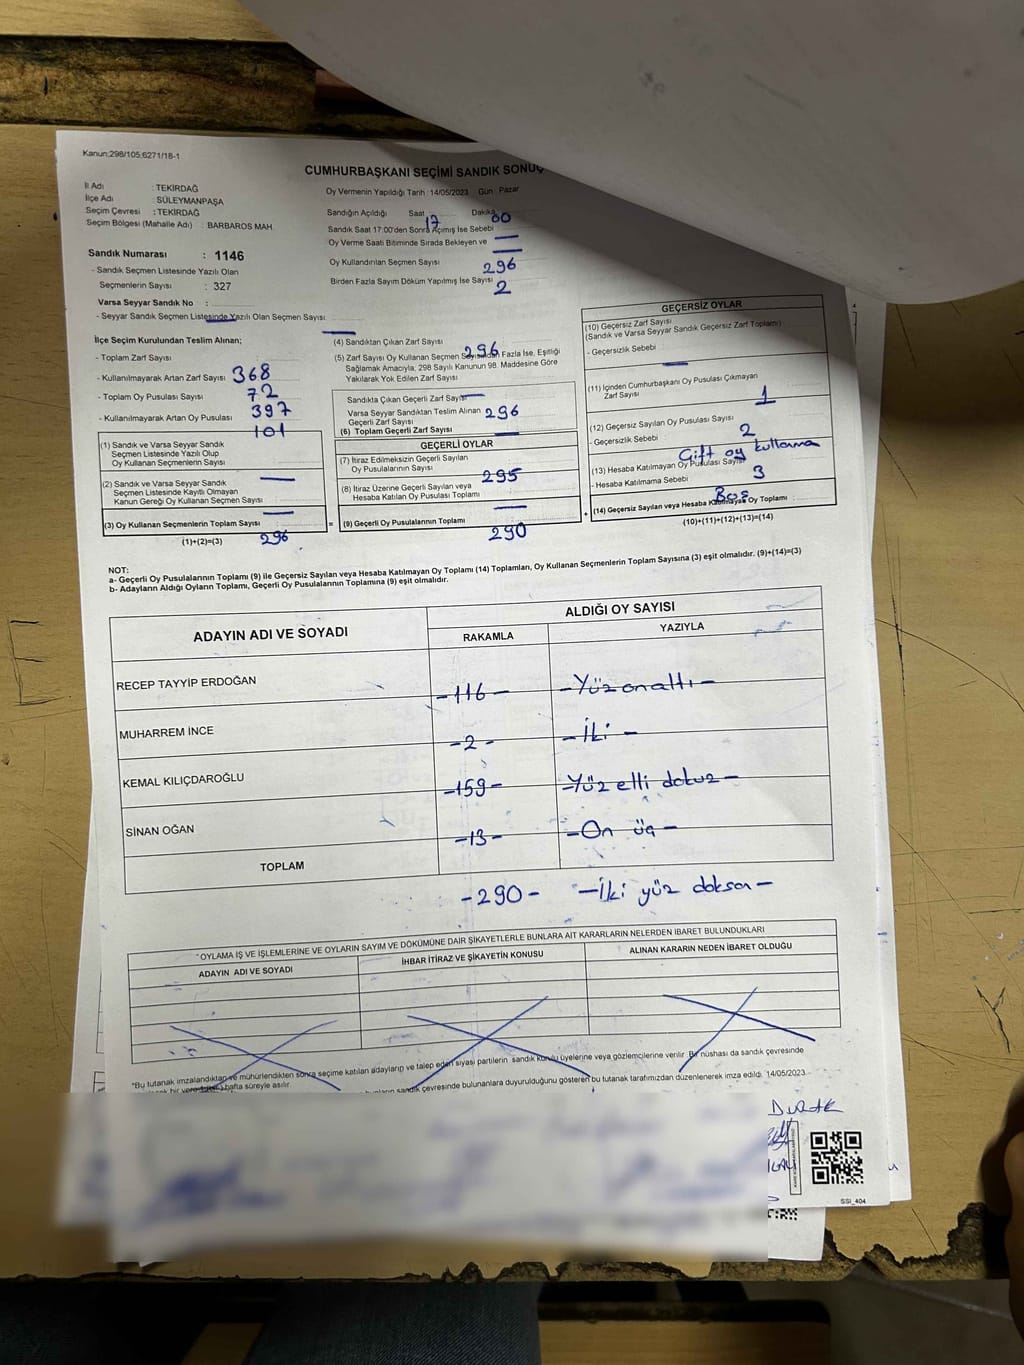 Kanun:298/105:6271/18-1
CUMHURBAŞKANI SEÇİMİ SANDIK SONUÇ
İl Adı : TEKİRDAĞ
İlçe Adı : SÜLEYMANPAŞA
Seçim Çevresi : TEKİRDAĞ
Seçim Bölgesi (Mahalle Adı) : BARBAROS MAH.
Oy Vermenin Yapıldığı Tarih :14/05/2023 Gün : Pazar
Sandığın Açıldığı Saat 17 Dakika 00
Sandık Saat 17:00'den Sonra Açımış İse Sebebi
Oy Verme Saati Bitiminde Sırada Bekleyen ve
Oy Kullandırılan Seçmen Sayısı 296
Birden Fazla Sayım Döküm Yapılmış İse Sayısı 2
Sandık Numarası : 1146
- Sandık Seçmen Listesinde Yazılı Olan
Seçmenlerin Sayısı : 327
Varsa Seyyar Sandık No :
- Seyyar Sandık Seçmen Listesinde Yazılı Olan Seçmen Sayısı
İlçe Seçim Kurulundan Teslim Alınan;
- Toplam Zarf Sayısı 368
- Kullanılmayarak Artan Zarf Sayısı 72
- Toplam Oy Pusulası Sayısı 397
- Kullanılmayarak Artan Oy Pusulası 101
(1) Sandık ve Varsa Seyyar Sandık
Seçmen Listesinde Yazılı Olup
Oy Kullanan Seçmenlerin Sayısı
(2) Sandık ve Varsa Seyyar Sandık
Seçmen Listesinde Kayıtlı Olmayan
Kanun Gereği Oy Kullanan Seçmen Sayısı
(3) Oy Kullanan Seçmenlerin Toplam Sayısı 296
(1)+(2)=(3)
(4) Sandıktan Çıkan Zarf Sayısı 296
(5) Zarf Sayısı Oy Kullanan Seçmen Sayısından Fazla İse, Eşitliği
Sağlamak Amacıyla; 298 Sayılı Kanunun 98. Maddesine Göre
Yakılarak Yok Edilen Zarf Sayısı
Sandıkta Çıkan Geçerli Zarf Sayısı 296
Varsa Seyyar Sandıktan Teslim Alınan
Geçerli Zarf Sayısı
(6) Toplam Geçerli Zarf Sayısı
GEÇERLİ OYLAR
(7) İtiraz Edilmeksizin Geçerli Sayılan
Oy Pusulalarının Sayısı 295
(8) İtiraz Üzerine Geçerli Sayılan veya
Hesaba Katılan Oy Pusulası Toplamı
= (9) Geçerli Oy Pusulalarının Toplamı 290
GEÇERSİZ OYLAR
(10) Geçersiz Zarf Sayısı
(Sandık ve Varsa Seyyar Sandık Geçersiz Zarf Toplamı)
- Geçersizlik Sebebi
(11) İçinden Cumhurbaşkanı Oy Pusulası Çıkmayan
Zarf Sayısı 1
(12) Geçersiz Sayılan Oy Pusulası Sayısı 2
- Geçersizlik Sebebi Çift oy kullanma
(13) Hesaba Katılmayan Oy Pusulası Sayısı 3
- Hesaba Katılmama Sebebi Boş
+ (14) Geçersiz Sayılan veya Hesaba Katılmayan Oy Toplamı
(10)+(11)+(12)+(13)=(14)
NOT:
a- Geçerli Oy Pusulalarının Toplamı (9) ile Geçersiz Sayılan veya Hesaba Katılmayan Oy Toplamı (14) Toplamları, Oy Kullanan Seçmenlerin Toplam Sayısına (3) eşit olmalıdır. (9)+(14)=(3)
b- Adayların Aldığı Oyların Toplamı, Geçerli Oy Pusulalarının Toplamına (9) eşit olmalıdır.
ADAYIN ADI VE SOYADI
ALDIĞI OY SAYISI
RAKAMLA YAZIYLA
RECEP TAYYİP ERDOĞAN -116- -Yüz onaltı-
MUHARREM İNCE -2- -İki-
KEMAL KILIÇDAROĞLU -159- -Yüz elli dokuz-
SİNAN OĞAN -13- -On üç-
TOPLAM -290- -İki yüz doksan-
"OYLAMA İŞ VE İŞLEMLERİNE VE OYLARIN SAYIM VE DÖKÜMÜNE DAİR ŞİKAYETLERLE BUNLARA AİT KARARLARIN NELERDEN İBARET BULUNDUKLARI
ADAYIN ADI VE SOYADI İHBAR İTİRAZ VE ŞİKAYETİN KONUSU ALINAN KARARIN NEDEN İBARET OLDUĞU
"Bu tutanak imzalandıktan ve mühürlendikten sonra seçime katılan adayların ve talep eden siyasi partilerin sandık kurulu üyelerine veya gözlemcilerine verilir. Bir nüshası da sandık çevresinde
hafta süreyle asılır.
sandık çevresinde bulunanlara duyurulduğunu gösteren bu tutanak tarafımızdan düzenlenerek imza edildi. 14/05/2023
SSI_404